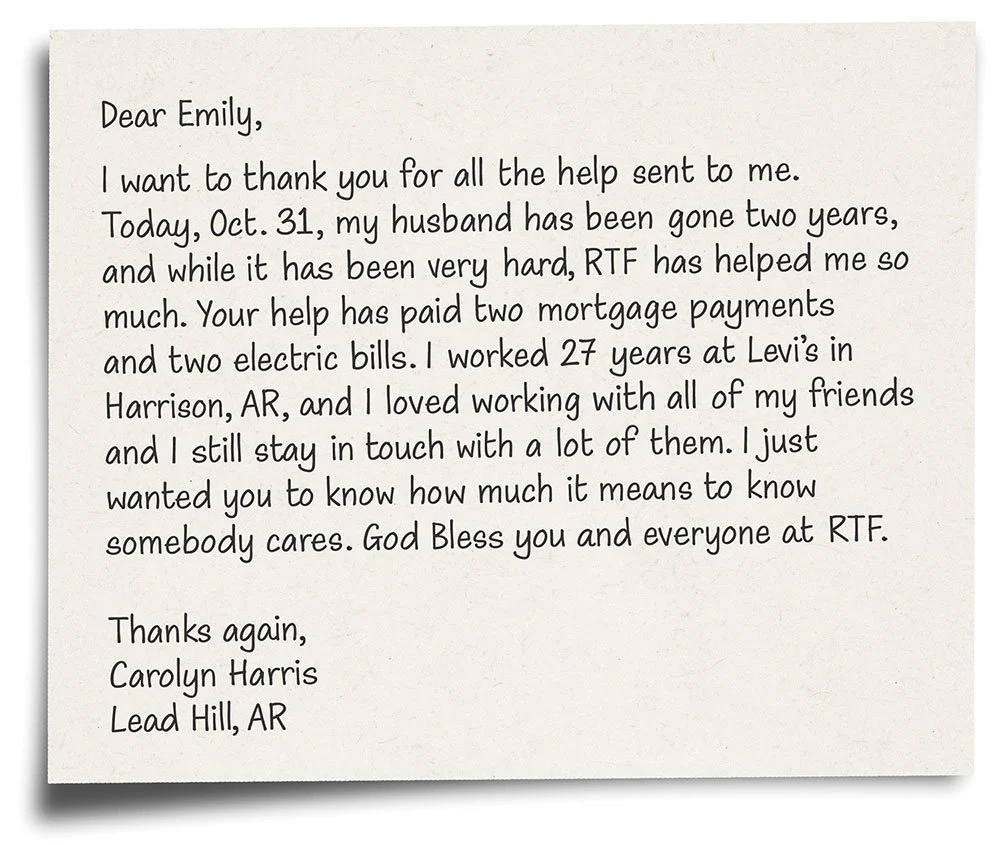 Dear Emily,
I want to thank you for all the help sent to me.
Today, Oct. 31, my husband has been gone two years,
and while it has been very hard, RTF has helped me so
much. Your help has paid two mortgage payments
and two electric bills. I worked 27 years at Levi's in
Harrison, AR, and I loved working with all of my friends
and I still stay in touch with a lot of them. I just
wanted you to know how much it means to know
somebody cares. God Bless you and everyone at RTF.
Thanks again,
Carolyn Harris
Lead Hill, AR